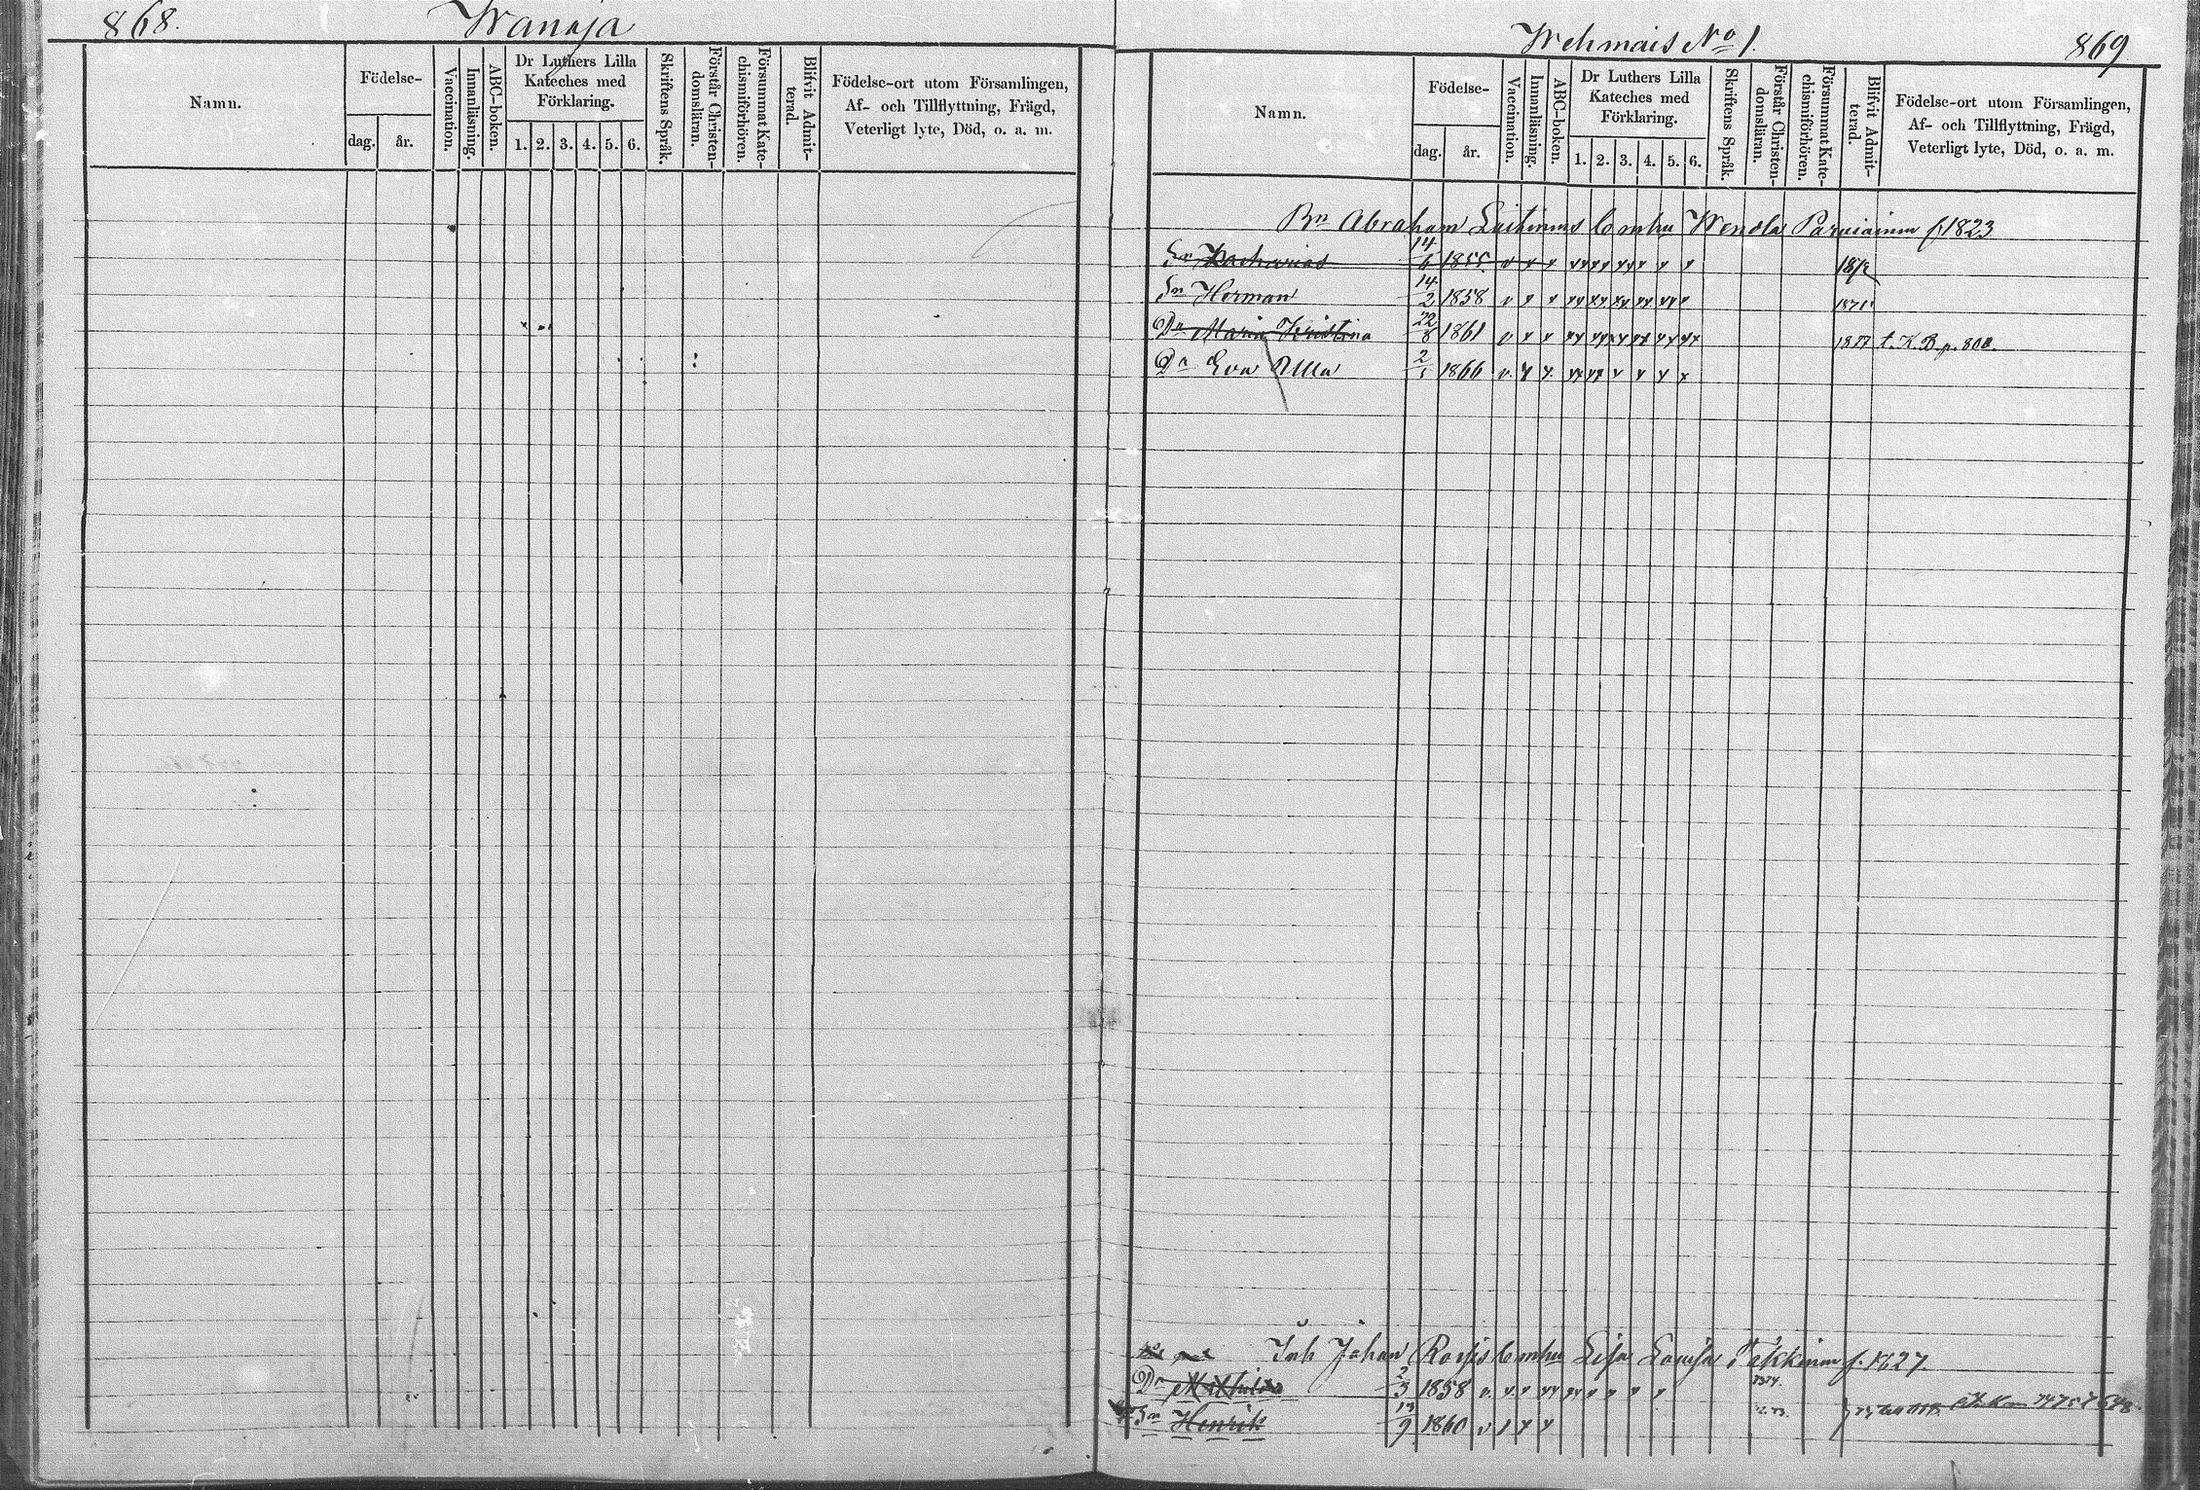 868.
Wanaja
Namn.
Födelse-
dag.
år.
Vaccination.
Innanläsning.
ABC-boken.
Dr Luthers Lilla
Kateches med
Förklaring.
1. 2. 3. 4. 5. 6.
Skriftens Språk.
Förstår Christen-
domsläran.
Försummat Kate-
chismiförhören.
Blifvit Admit-
terad.
Födelse-ort utom Församlingen,
Af- och Tillflyttning, Frägd,
Veterligt lyte, Död, o. a. m.
Wehmais No 1.
869
Namn.
Födelse-
dag.
år.
Vaccination.
Innanläsning.
ABC-boken.
Dr Luthers Lilla
Kateches med
Förklaring.
1. 2. 3. 4. 5. 6.
Skriftens Språk.
Förstår Christen-
domsläran.
Försummat Kate-
chismiförhören.
Blifvit Admit-
terad.
Födelse-ort utom Församlingen,
Af- och Tillflyttning, Frägd,
Veterligt lyte, Död, o. a. m.
Bn Abraham Laitinens Enka Wendla Parviainen f. 1823
Sn Zacharias 14/6 1855 v x x
Sn Herman 14/2 1858 v x x 1871
Dr Maria Kristina 22/8 1861 v x x 1877 t. K.B. p.
Dr Eva Ulla 2 1866 v x x
Inh Johan Enka Lisa Lovisa f. 1827
Dr Mathilda 2/3 1858 v. x. x
Sn Henrik 13/9 1860 v x x